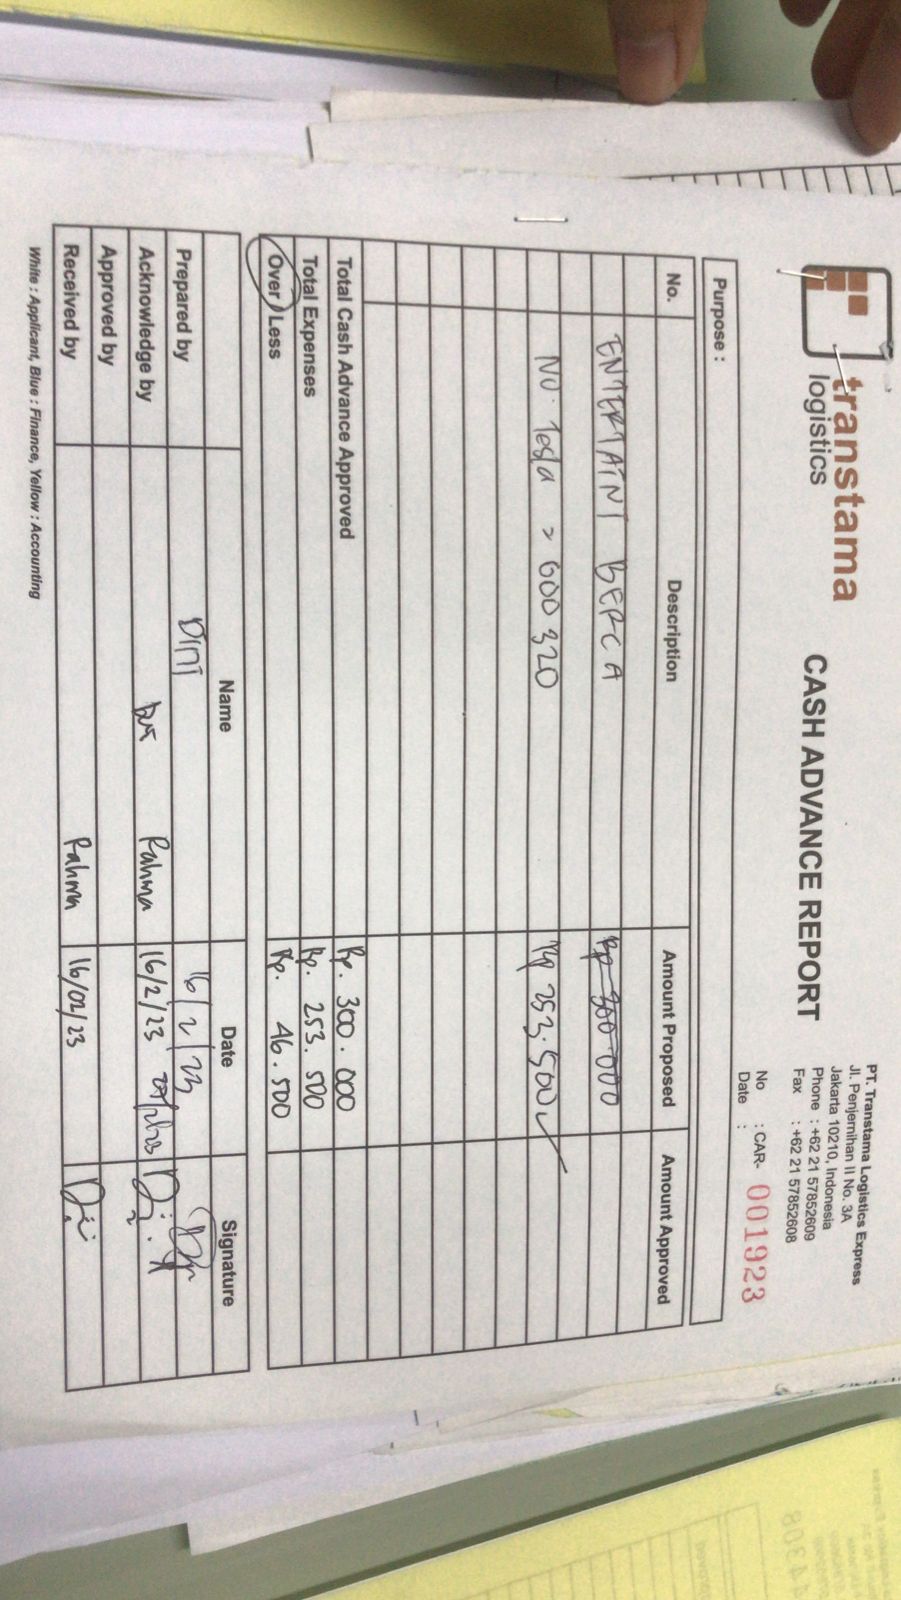 transtama
logistics
CASH ADVANCE REPORT
PT. Transtama Logistics Express
Jl. Penjernihan II No. 3A
Jakarta 10210, Indonesia
Phone : +62 21 57852609
Fax : +62 21 57852608
No : CAR- 001923
Date :
Purpose :
No. Description Amount Proposed Amount Approved
ENTERTAINT BERCA Rp 300.000
NO. Tesla > 600 320 Rp 253.500
Total Cash Advance Approved Rp. 300.000
Total Expenses Rp. 253.500
Over / Less Rp. 46.500
Name Date Signature
Prepared by DINI 16/2/23
Acknowledge by Rahma 16/2/23
Approved by
Received by Rahma 16/02/23
White : Applicant, Blue : Finance, Yellow : Accounting